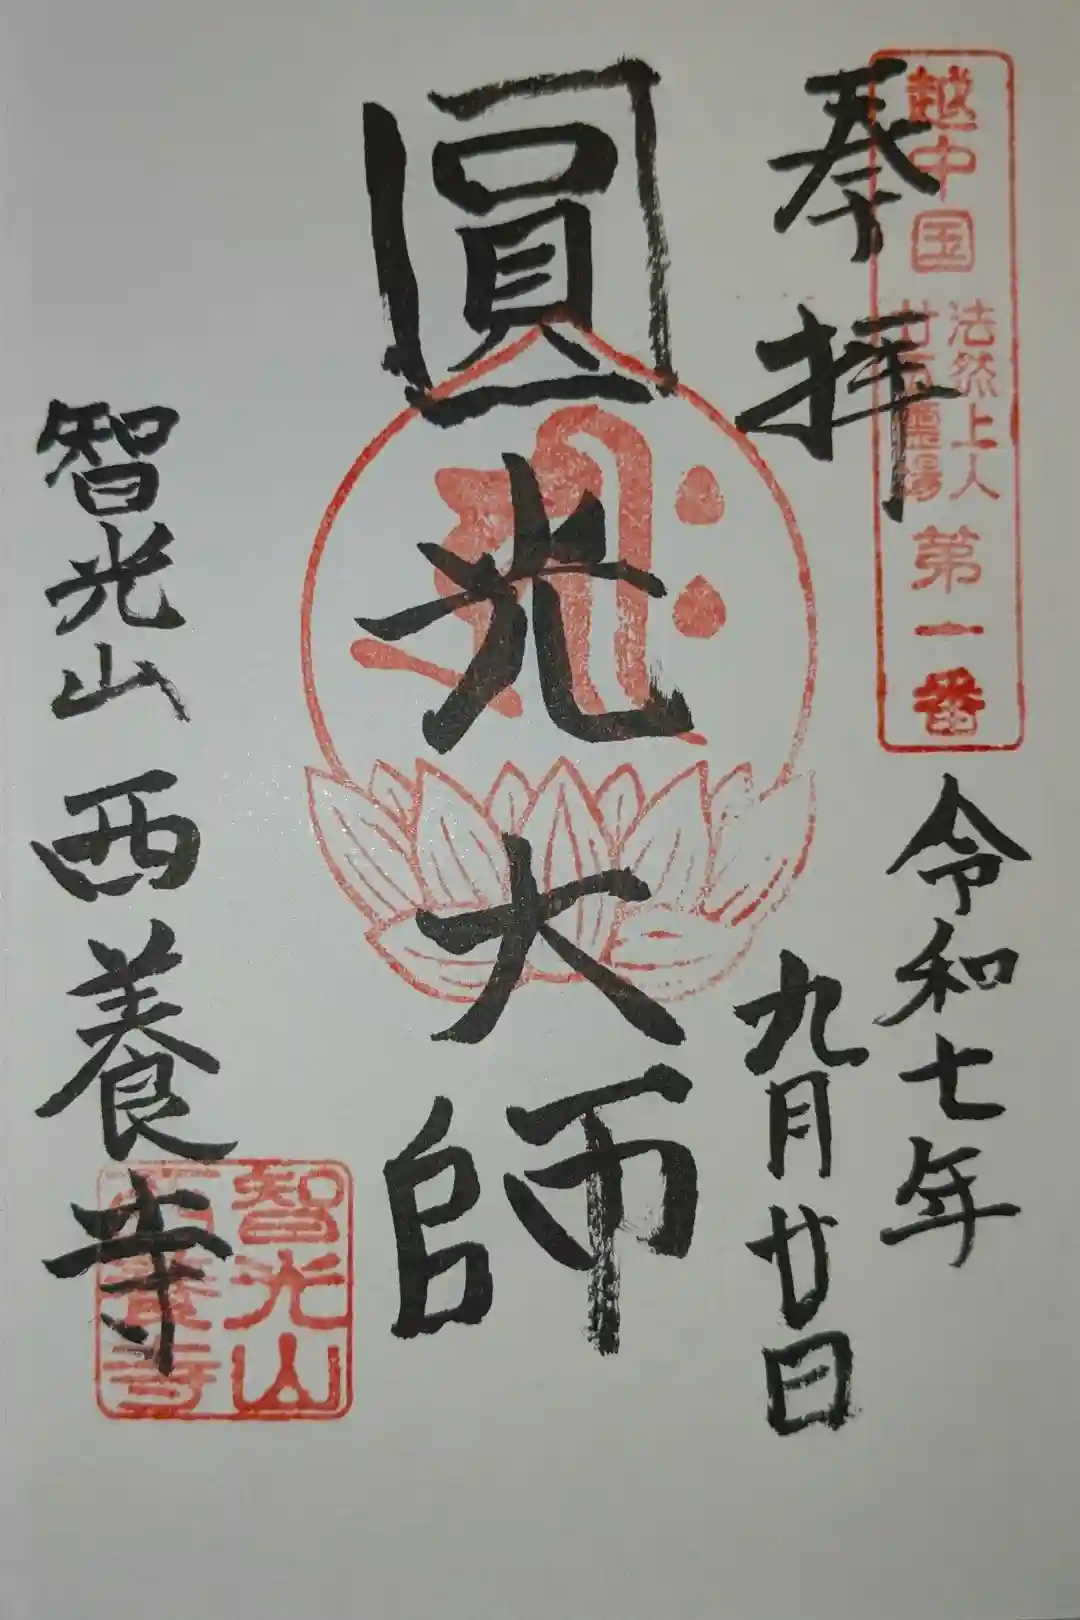 越中国
法然上人
廿五霊場
第一番
奉拝
令和七年
九月廿日
圓光大師
智光山 西養寺
智光山
西養寺